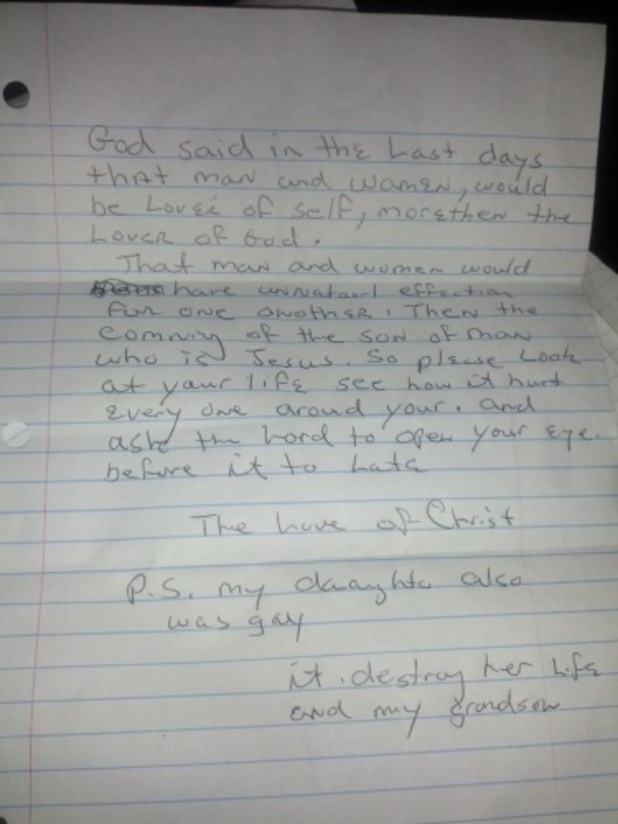 God said in the Last days
that man and women, would
be Lover of self, more then the
Lover of God.
That man and women would
have unnaturl effection
for one another. Then the
comming of the son of man
who is Jesus. So please Look
at your life see how it hurt
every one aroud your. and
ask the Lord to open your eye.
before it to Late
The Love of Christ
P.S. my daughte also
was gay
it destroy her Life
and my grandson